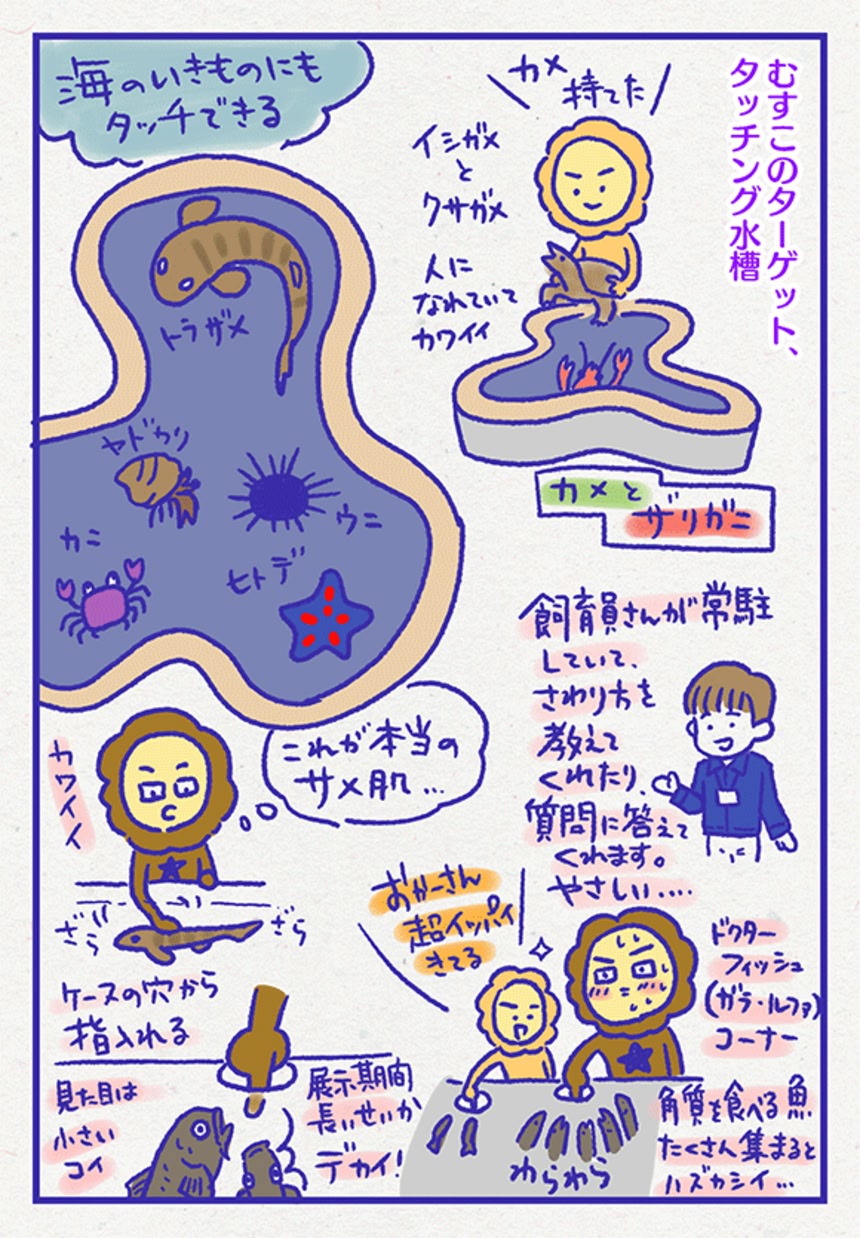 むすこのターゲット、
タッチング水槽
カメ
持てた
イシガメ
と
クサガメ
人に
なれていて
カワイイ
カメと
ザリガニ
海のいきものにも
タッチできる
トラザメ
ヤドカリ
ウニ
カニ
ヒトデ
飼育員さんが常駐
していて、
さわり方を
教えて
くれたり、
質問に答えて
くれます。
やさしい‥‥
これが本当の
サメ肌…
カワイイ
ざら
ざら
おかーさん
超イッパイ
きてる
ドクター
フィッシュ
(ガラ・ルファ)
コーナー
角質を食べる魚
たくさん集まると
ハズカシイ…
わらわら
ケースの穴から
指入れる
見た目は
小さい
コイ
展示期間
長いせいか
デカイ!